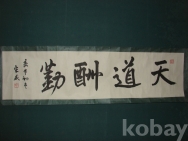 天道酬勤
kobay